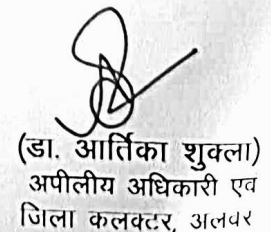 (डा. आर्तिका शुक्ला)
अपीलीय अधिकारी एव
जिला कलक्टर, अलवर